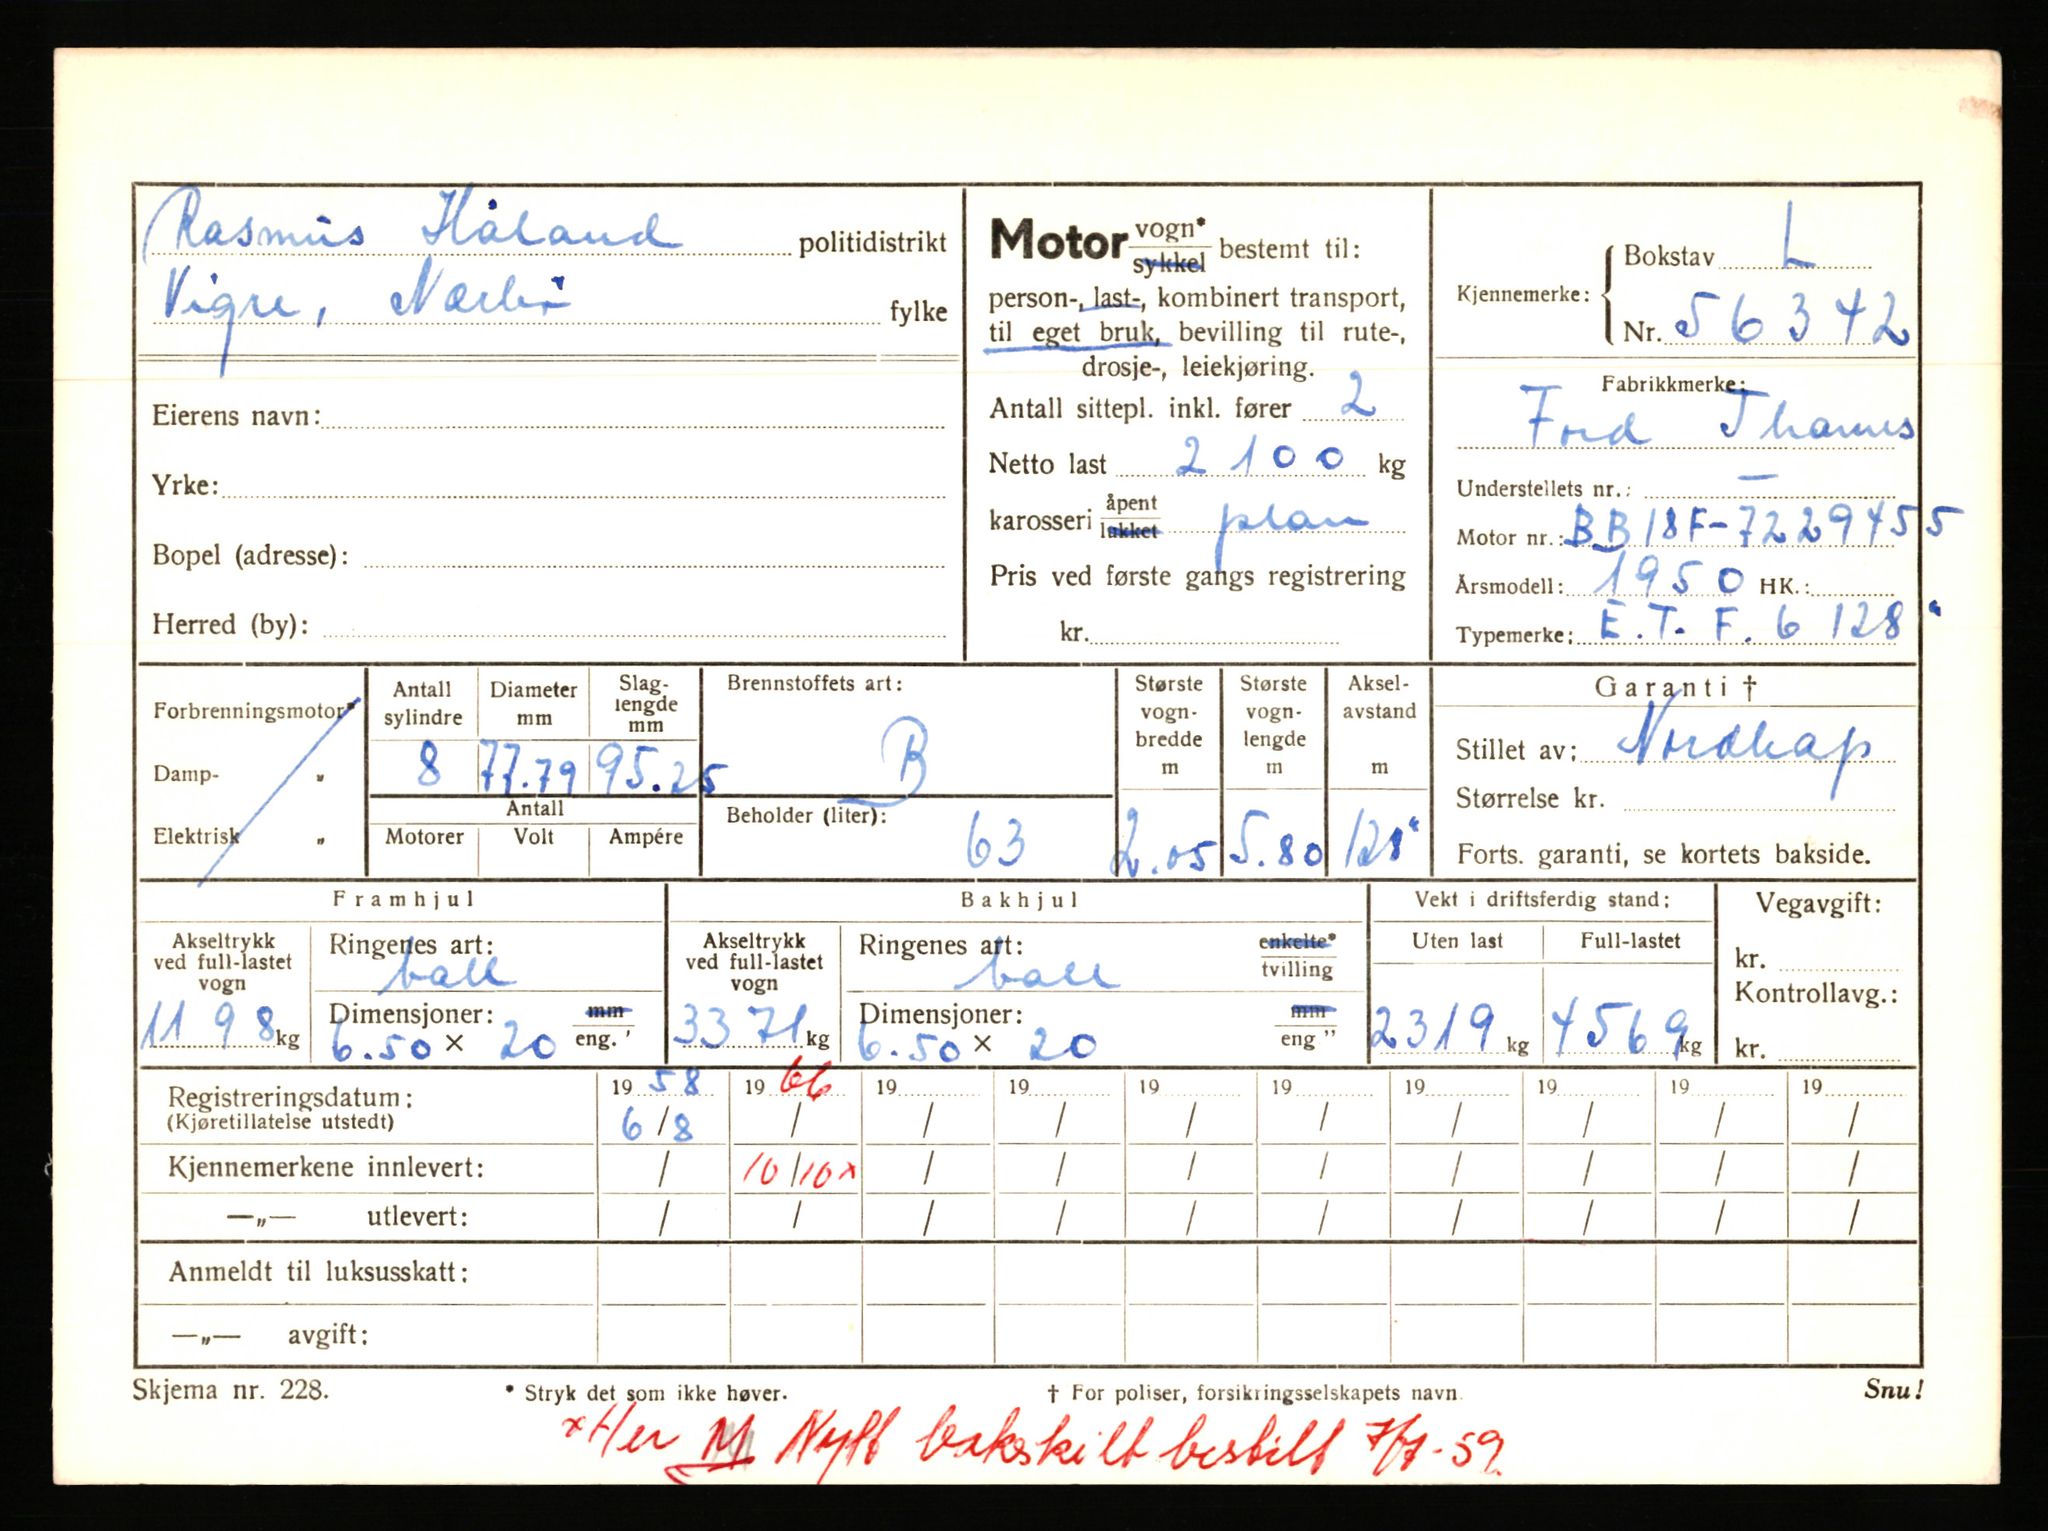 Rasmus Håland politidistrikt
Vigre, Nærbø fylke
Eierens navn:
Yrke:
Bopel (adresse):
Herred (by):
Motor vogn* sykkel bestemt til:
person-, last-, kombinert transport,
til eget bruk, bevilling til rute-,
drosje-, leiekjøring.
Antall sittepl. inkl. fører 2
Netto last 2100 kg
karosseri åpent lukket plan
Pris ved første gangs registrering
kr.
Kjennemerke: Bokstav L
Nr. 56342
Fabrikkmerke:
Ford Thames
Understellets nr.: —
Motor nr.: BB18F-7229455
Årsmodell: 1950 HK.:
Typemerke: E.T.F. 6 128"
Forbrenningsmotor*
Damp- „
Elektrisk „
Antall sylindre 8
Diameter mm 77.79
Slag-lengde mm 95.25
Antall
Motorer Volt Ampére
Brennstoffets art:
B
Beholder (liter):
63
Største vogn-bredde m 2.05
Største vogn-lengde m 5.80
Aksel-avstand m 128"
Garanti †
Stillet av: Nordkap
Størrelse kr.
Forts. garanti, se kortets bakside.
Framhjul
Akseltrykk ved full-lastet vogn 1198 kg
Ringenes art: ball
Dimensjoner: mm eng.'
6.50 × 20
Bakhjul
Akseltrykk ved full-lastet vogn 3371 kg
Ringenes art: enkelte* tvilling
ball
Dimensjoner: mm eng"
6.50 × 20
Vekt i driftsferdig stand:
Uten last 2319 kg
Full-lastet 4569 kg
Vegavgift:
kr.
Kontrollavg.:
kr.
Registreringsdatum: 19 58 19 66 19 19 19 19 19 19 19 19
(Kjøretillatelse utstedt) 6/8 / / / / / / / / /
Kjennemerkene innlevert: / 10/10x / / / / / / / /
—„— utlevert: / / / / / / / / / /
Anmeldt til luksusskatt:
—„— avgift:
Skjema nr. 228. * Stryk det som ikke høver. † For poliser, forsikringsselskapets navn. Snu!
x Her M Nytt bakskilt bestilt 7/7-59.